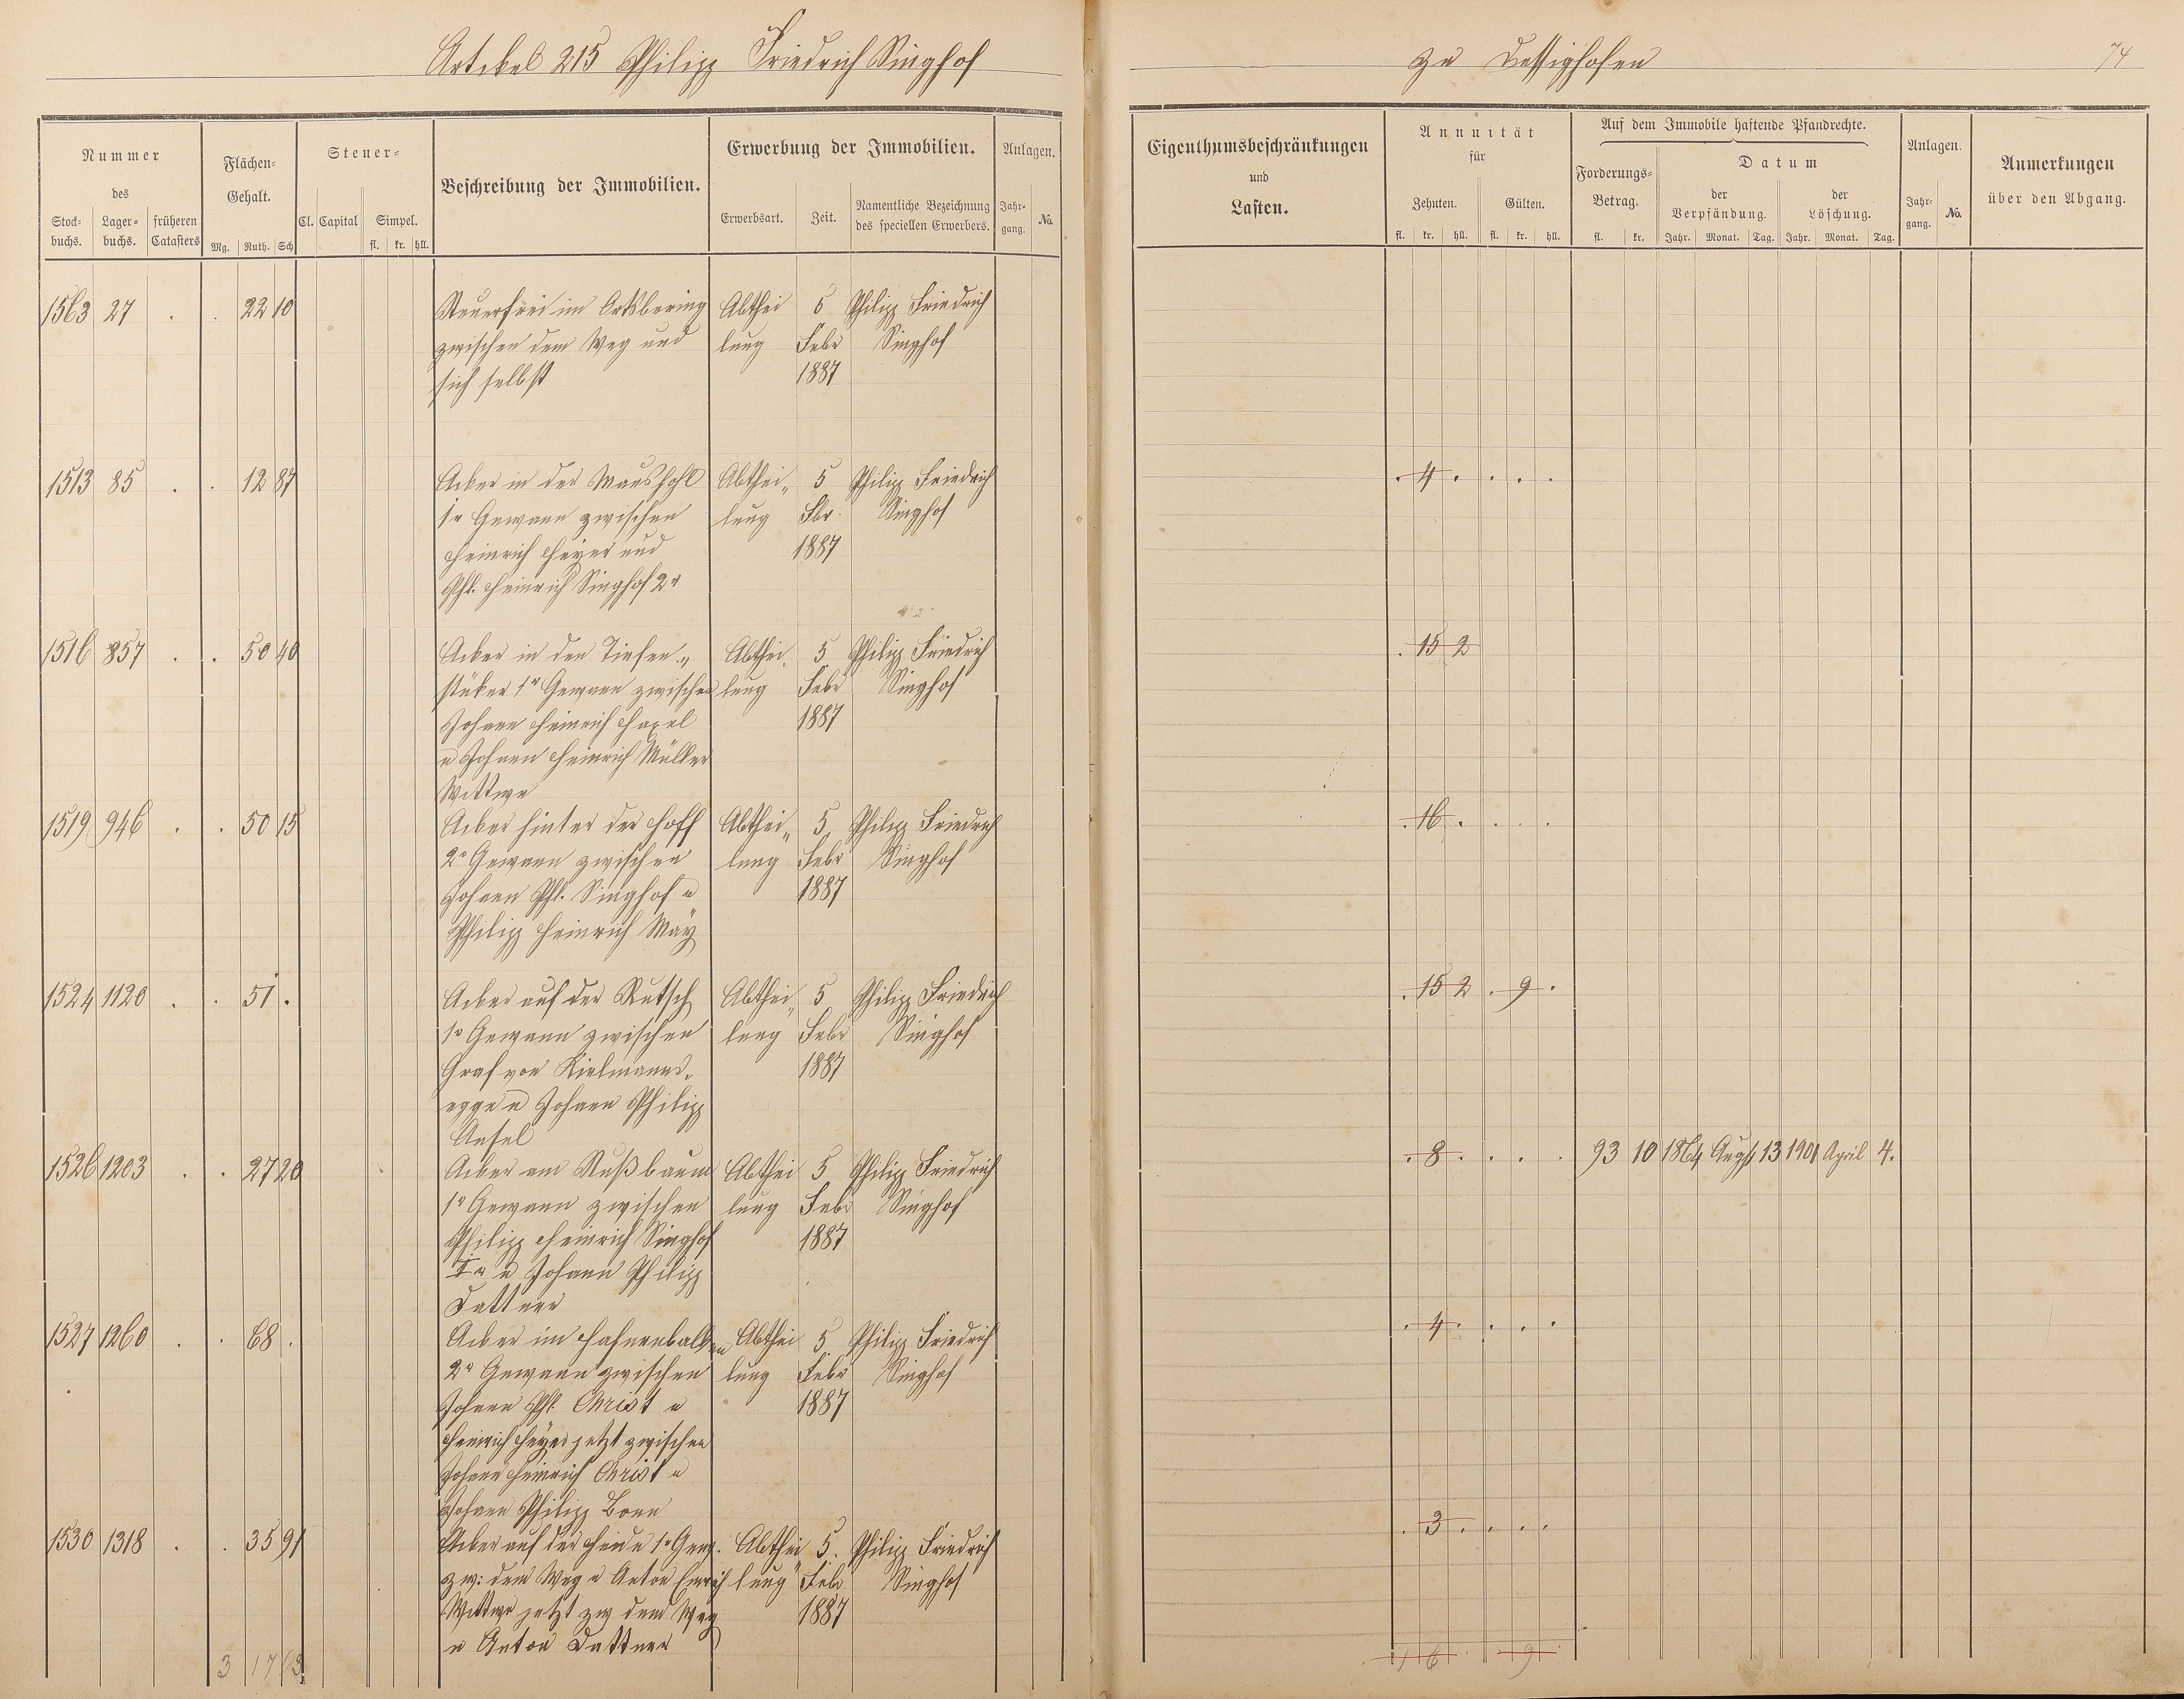 Artikel 215 Philipp Friedrich Singhof
zu Dessighofen
74
Nummer
des
Stock-
buchs.
Lager-
buchs.
früheren
Catasters
Flächen-
Gehalt.
Mg. Ruth. Sch
Steuer-
Cl. Capital Simpel.
fl. kr. hll.
Beschreibung der Immobilien.
Erwerbung der Immobilien.
Erwerbsart. Zeit.
Namentliche Bezeichnung
des speciellen Erwerbers.
Anlagen.
Jahr-
gang.
No.
Eigenthumsbeschränkungen
und
Lasten.
Annuität
für
Zehnten. Gülten.
fl. kr. hll. fl. kr. hll.
Auf dem Immobile haftende Pfandrechte.
Forderungs-
Betrag.
fl. kr.
Datum
der
Verpfändung.
der
Löschung.
Jahr. Monat. Tag. Jahr. Monat. Tag.
Anlagen.
Jahr-
gang.
No.
Anmerkungen
über den Abgang.
1563 27 . . 22 10 Steuerfrei im Ortsbering Abthei 5 Philipp Friedrich
zwischen dem Weg und lung Febr Singhof
sich selbst 1887
1513 85 . . 12 87 Acker in der Maushohl Abthei„ 5 Philipp Friedrich . 4 . . . .
1r Gewann zwischen lung Fbr. Singhof
Heinrich Heyer und 1887
Phl. Heinrich Singhof 2r
1516 857 . . 50 40 Acker in den Tiefen„ Abthei 5 Philipp Friedrich . 15 2
stüker 1r Gewann zwischen lung Febr Singhof
Johann Heinrich Haxel 1887
u Johann Heinrich Müller
Wittwe
1519 946 . . 50 15 Acker hinter der Hoff Abthei„ 5 Philipp Friedrich . 16 . . . .
2r Gewann zwischen lung Febr Singhof
Johann Phl. Singhof u 1887
Philipp Heinrich May
1524 1120 . . 51 . Acker auf der Rutsch Abthei„ 5 Philipp Friedrich . 15 2 . 9 .
1r Gewann zwischen lung Febr Singhof
Graf von Kielmanns„ 1887
egge u Johann Philipp
Ansel
1526 1203 . . 27 20 Acker am Nußbaum Abthei 5 Philipp Friedrich . 8 . . . . 93 10 1864 Augst 13 1901 April 4.
1r Gewann zwischen lung Febr Singhof
Philipp Heinrich Singhof 1887
Ir u Johann Philipp
Dattner
1527 1260 . . 68 . Acker im Hahnenbalken Abthei 5 Philipp Friedrich . 4 . . . .
2r Gewann zwischen lung Febr Singhof
Johann Phl. Christ u 1887
Heinrich Heyer jetzt zwischen
Johann Heinrich Christ u
Johann Philipp Bonn
1530 1318 . . 35 91 Acker auf der Heide 1r Gew. Abthei 5. Philipp Friedrich . 3 . . . .
zw: dem Weg u Anton Emrich lung Febr Singhof
Wittwe jetzt zw dem Weg 1887
u Anton Dattner
3 17 63 1 6 . 9 .